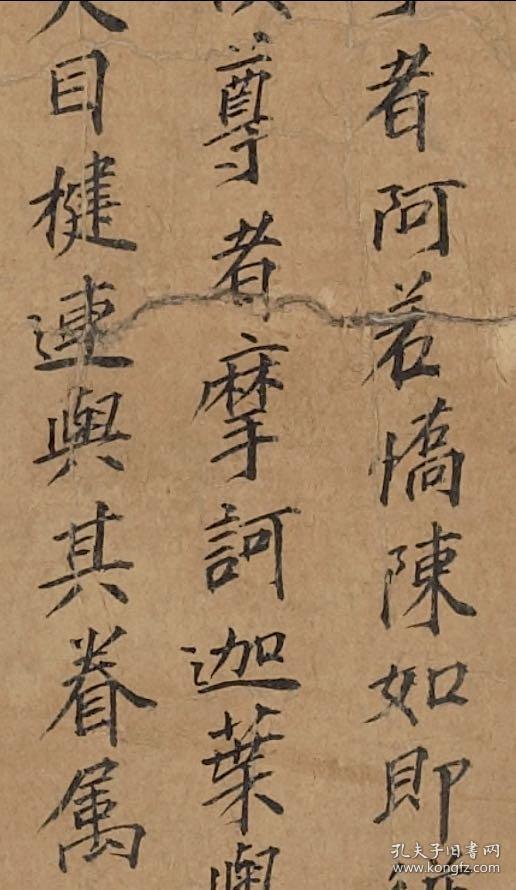 者阿若憍陳如即
尊者摩訶迦葉與
目犍連與其眷属
孔夫子旧书网
www.kongfz.com